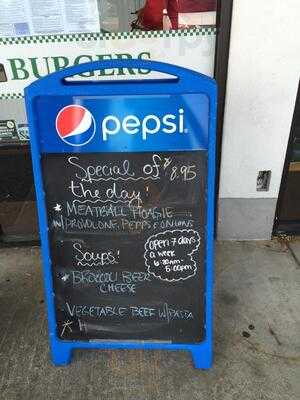 BURGERS
pepsi
Special of $8.95
the day!
* MEATBALL HOAGIE
w/ PROVOLONE, PEPPS & ONIONS
open 7 days
a week
6:30am
5:00pm
Soups!
* BROCCOLI BEER
CHEESE
- VEGETABLE BEEF W/ PASTA